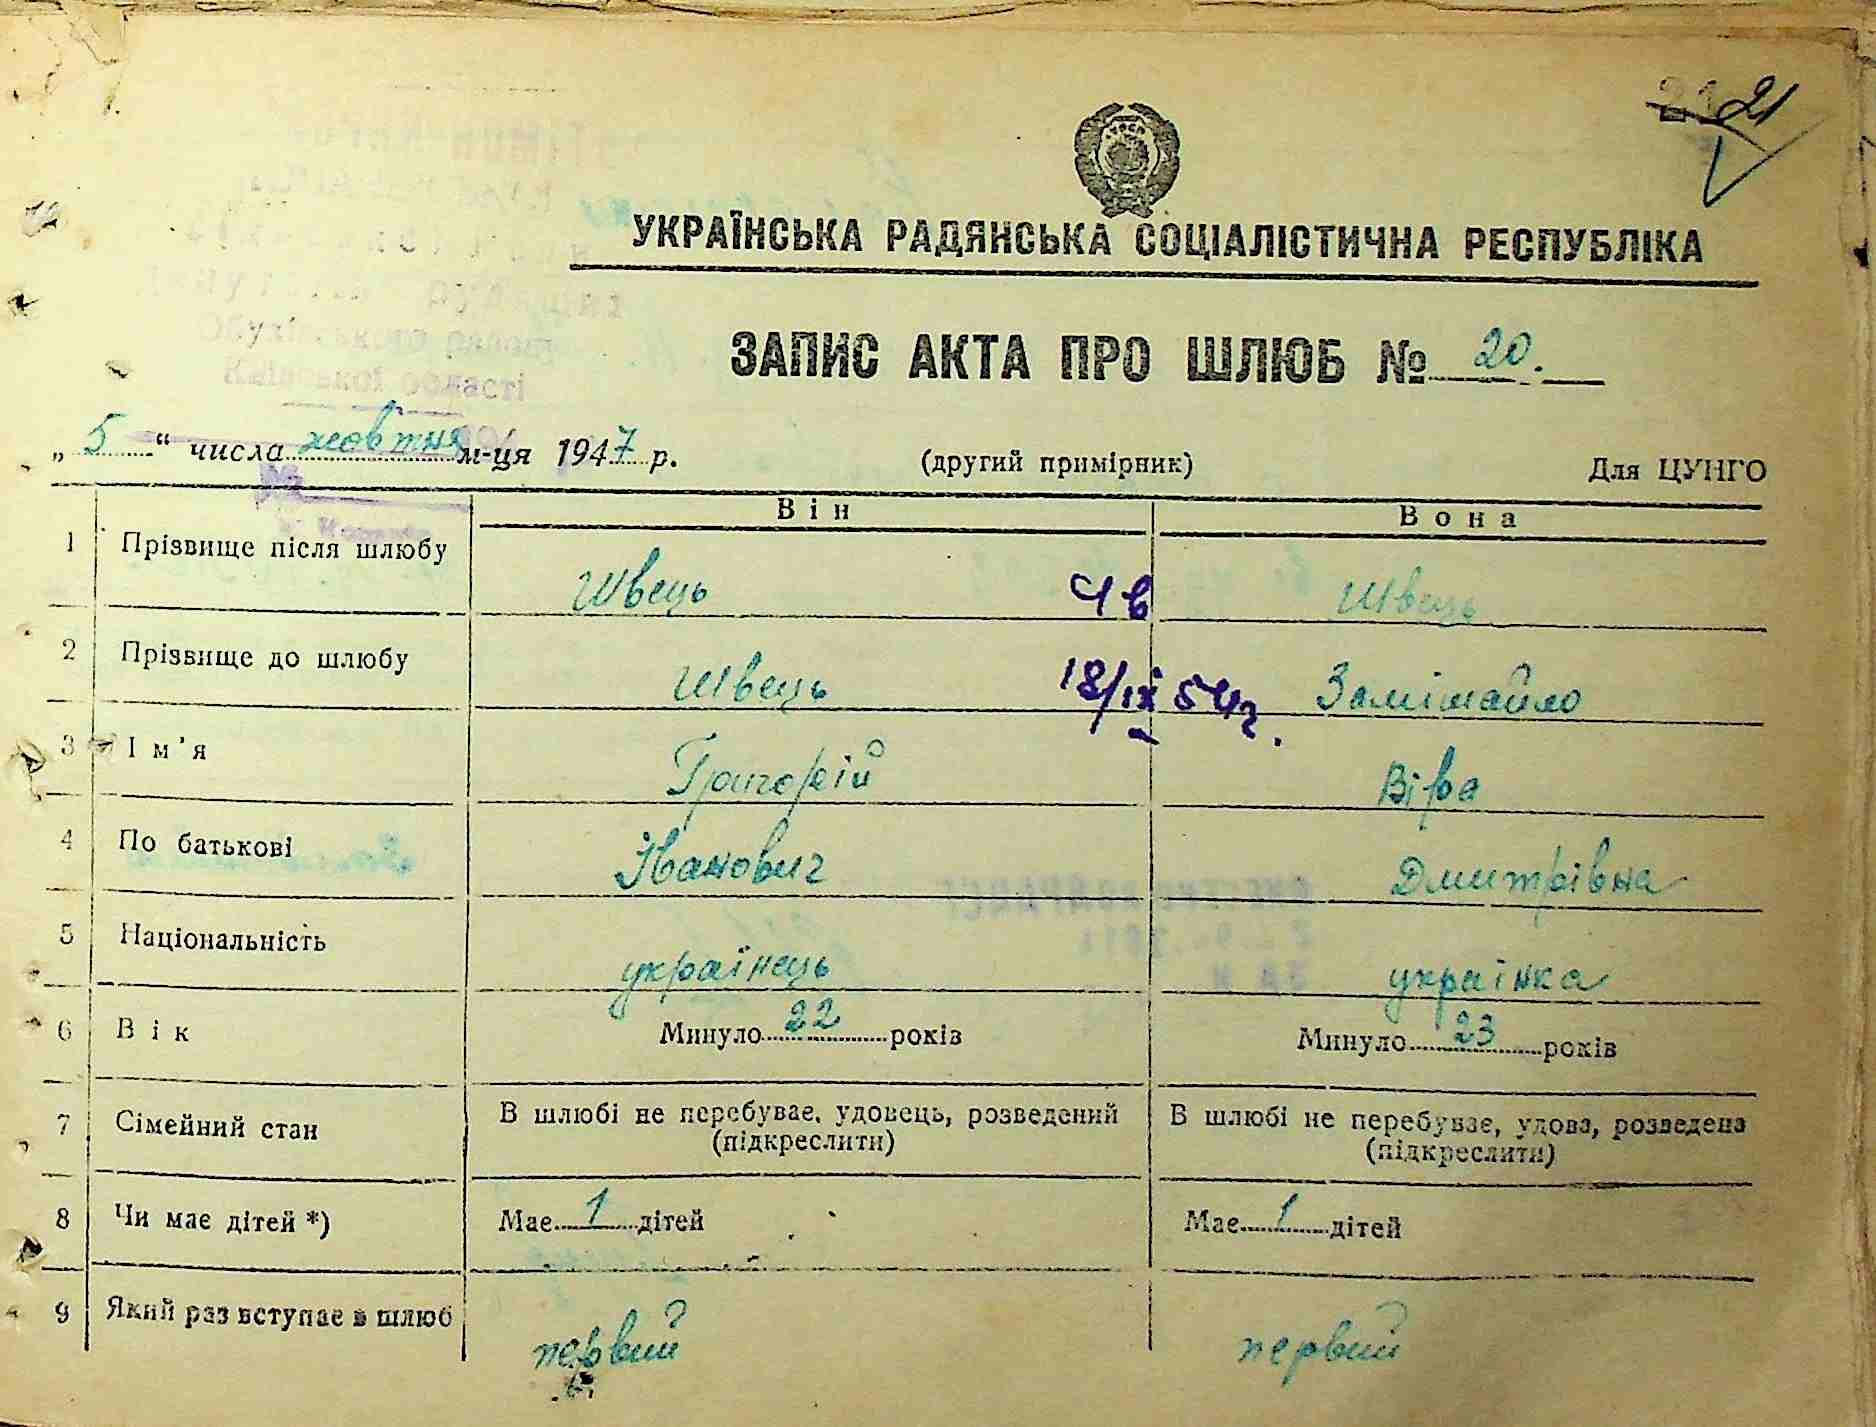 21 21
УКРАЇНСЬКА РАДЯНСЬКА СОЦІАЛІСТИЧНА РЕСПУБЛІКА
ЗАПИС АКТА ПРО ШЛЮБ № 20.
Обухівського району
Київської області
„ 5 “ числа жовтня м-ця 1947 р. (другий примірник) Для ЦУНГО
№
Він Вона
1 Прізвище після шлюбу Швець Чв Швець
2 Прізвище до шлюбу Швець 18/ІХ 54г. Залімайло
3 Ім’я Григорій Віра
4 По батькові Іванович Дмитрівна
5 Національність українець украінка
6 Вік Минуло 22 років Минуло 23 років
7 Сімейний стан В шлюбі не перебуває, удовець, розведений (підкреслити) В шлюбі не перебуває, удова, розведена (підкреслити)
8 Чи має дітей *) Має 1 дітей Має 1 дітей
9 Який раз вступає в шлюб первий первий